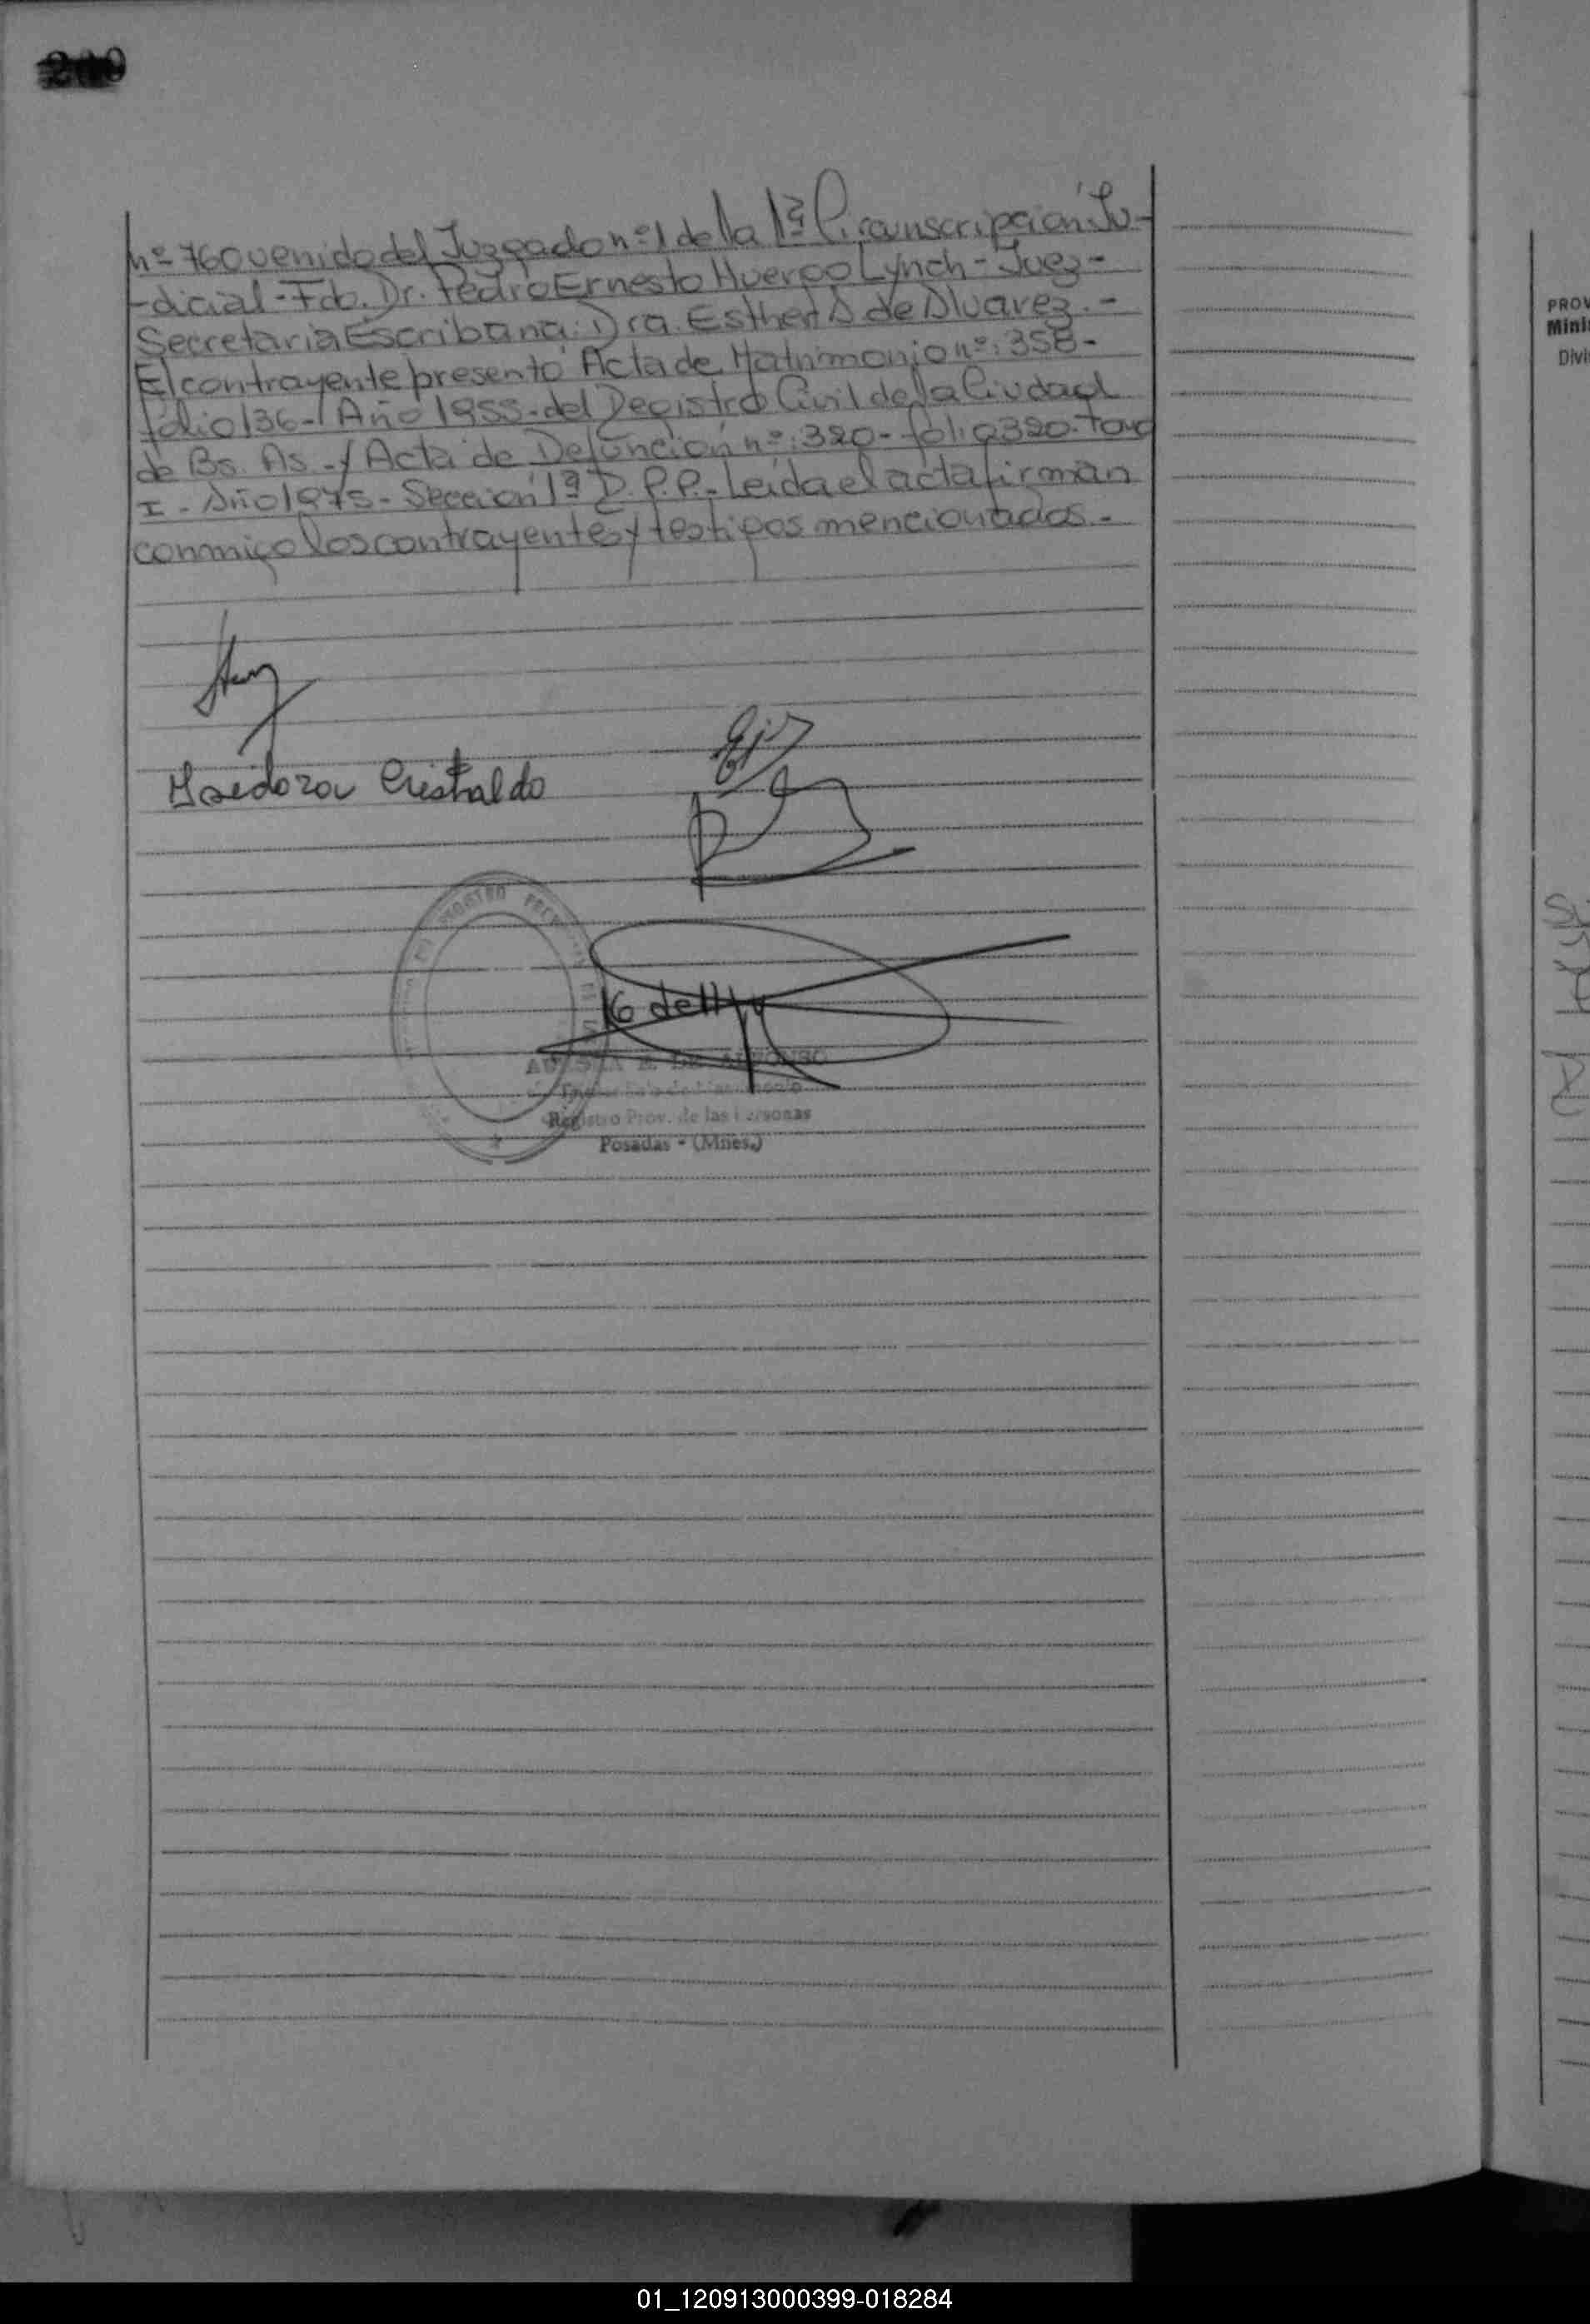 nº 760 venido del Juzgado nº 1 de la 1ª Circunscripción Ju-
-dicial - Fdo. Dr. Pedro Ernesto Huergo Lynch - Juez -
Secretaria Escribana: Dra. Esther A de Alvarez. -
El contrayente presentó Acta de Matrimonio nº: 358 -
folio 136 - Año 1955 - del Registro Civil de la Ciudad
de Bs. As. - y Acta de Defunción nº: 320 - folio 320 - Tomo
I - Año 1975 - Sección 1ª R.P.P. - Leída el acta firman
conmigo los contrayentes y testigos mencionados. -
Isidora Cristaldo
REGISTRO
DE
Registro Prov. de las Personas
Posadas - (Mnes.)
PROV
Minis
Divi
01_120913000399-018284